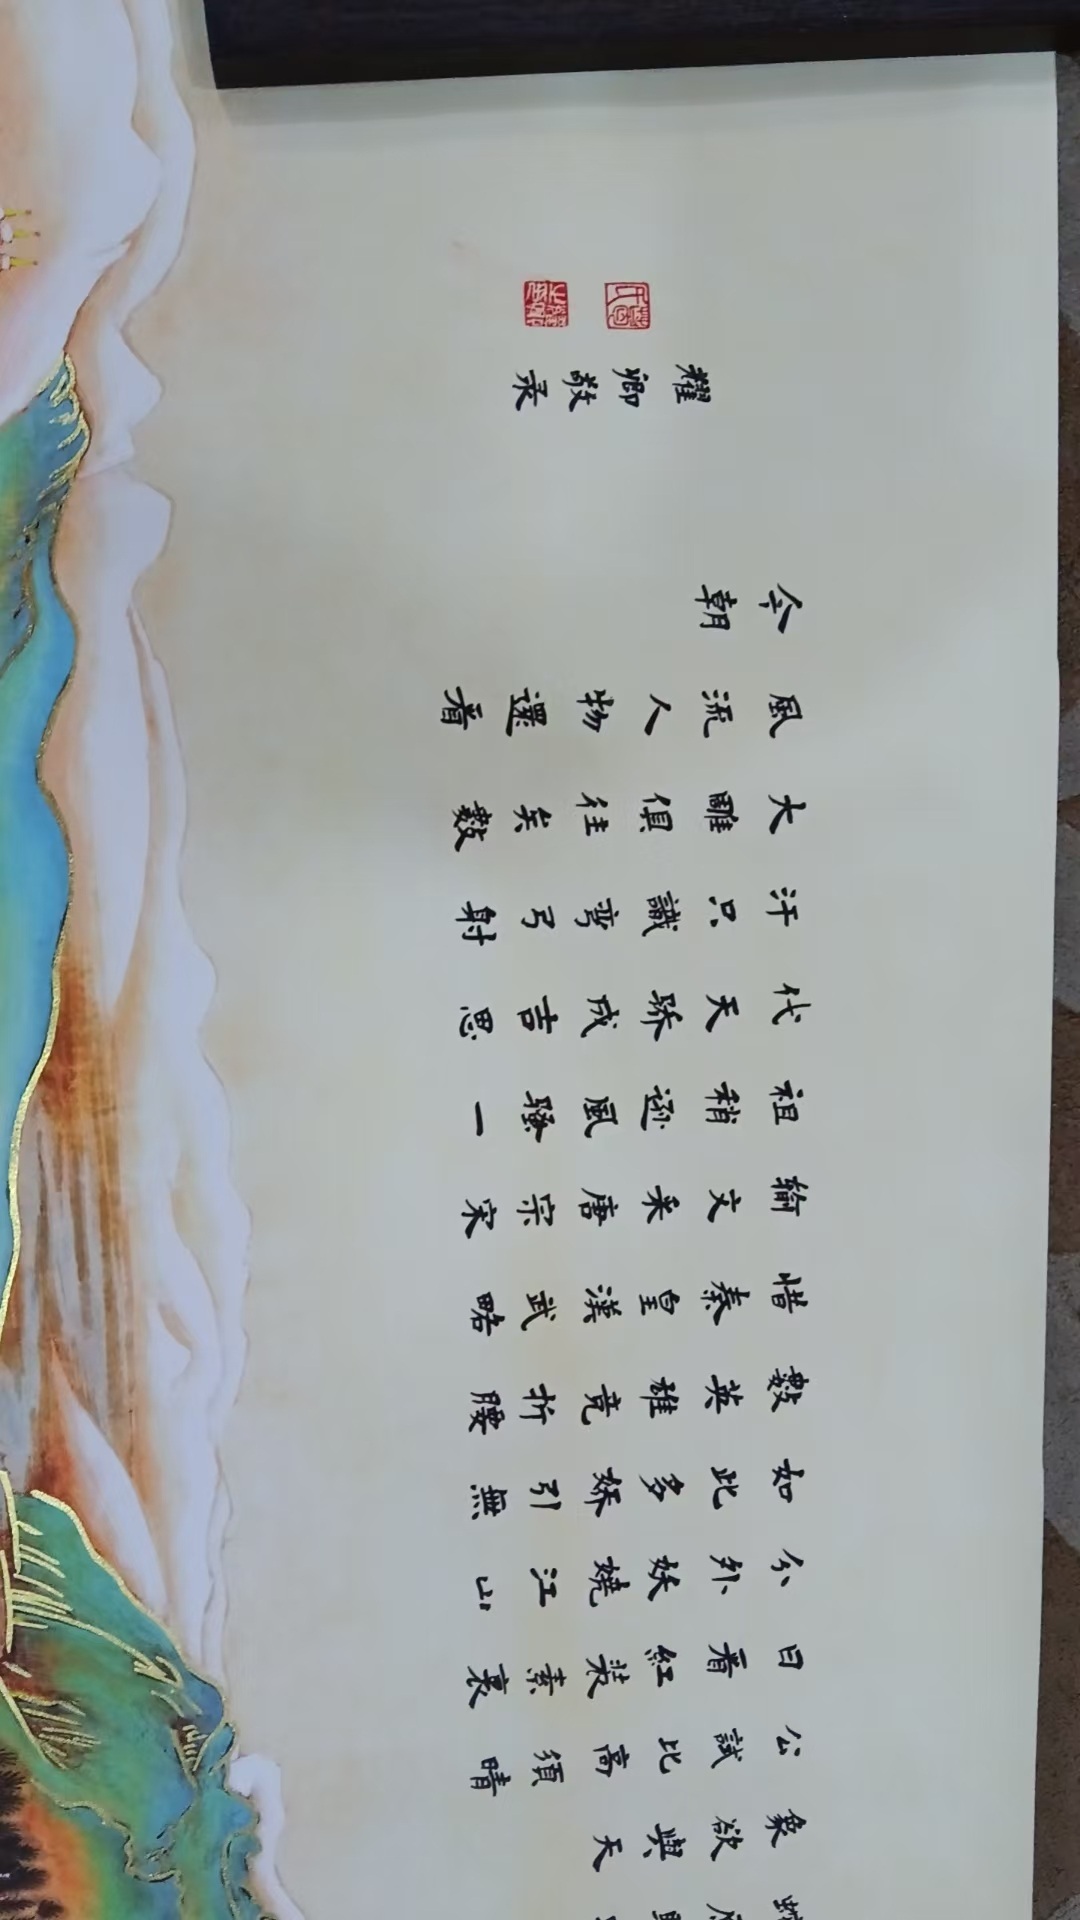 象欲與天
公試比高須晴
日看紅装素裹
分外妖嬈江山
如此多娇引無
數英雄竞折腰
惜秦皇漢武略
輸文采唐宗宋
祖稍逊風騷一
代天骄成吉思
汗只識弯弓射
大雕俱往矣數
風流人物還看
今朝
耀卿敬录